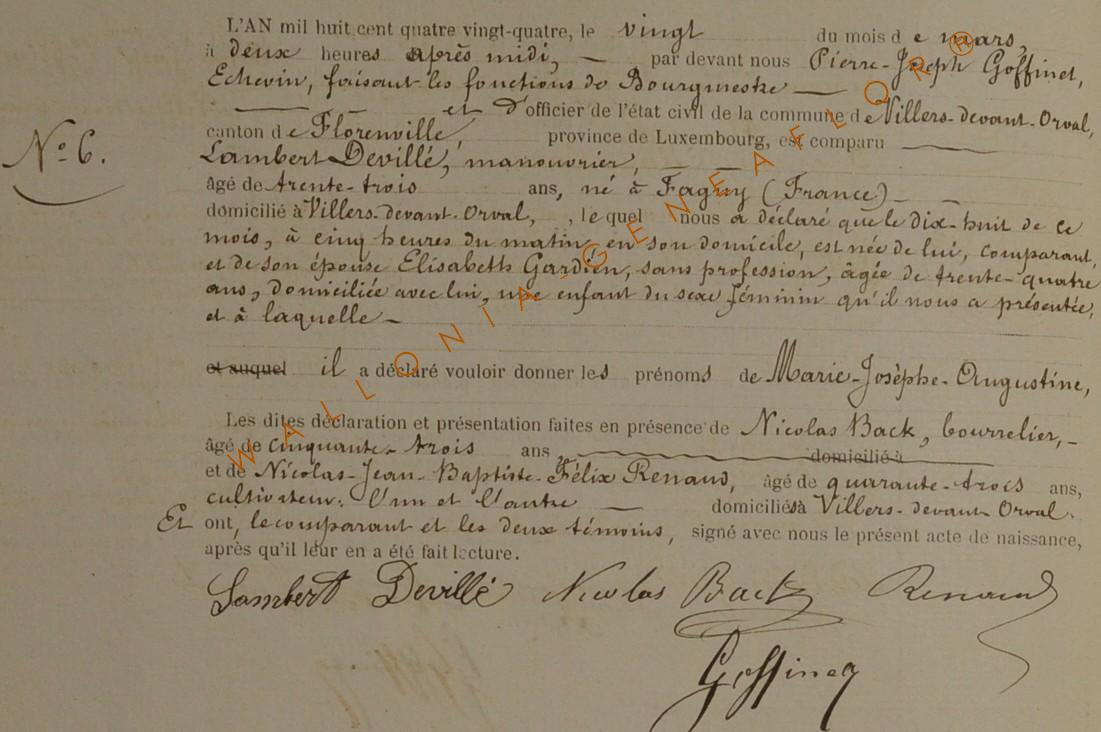 L'AN mil huit cent quatre vingt-quatre, le vingt du mois de mars,
à deux heures après midi, — par devant nous Pierre-Joseph Goffinet,
Echevin, faisant les fonctions de Bourgmestre —
— et d'officier de l'état civil de la commune de Villers-devant-Orval,
canton de Florenville, province de Luxembourg, est comparu —
N° 6.
Lambert Devillé, manouvrier, —
âgé de trente-trois ans, né à Fagny (France) —
domicilié à Villers-devant-Orval, , lequel nous a déclaré que le dix-huit de ce
mois, à cinq heures du matin, en son domicile, est née de lui, comparant,
et de son épouse Elisabeth Gardien, sans profession, âgée de trente-quatre
ans, domiciliée avec lui, une enfant du sexe féminin qu'il nous a présentée,
et à laquelle —
et auquel il a déclaré vouloir donner les prénoms de Marie-Josèphe-Augustine,
Les dites déclaration et présentation faites en présence de Nicolas Back, bourrelier, -
âgé de cinquante-trois ans, domicilié à
et de Nicolas-Jean-Baptiste-Félix Renaud, âgé de quarante-trois ans,
cultivateur. L'un et l'autre — domiciliés à Villers-devant-Orval.
Et ont, le comparant et les deux témoins, signé avec nous le présent acte de naissance,
après qu'il leur en a été fait lecture.
Lambert Devillé Nicolas Back Renaud
Goffinet
WALLONIA-GENEAFLOR®